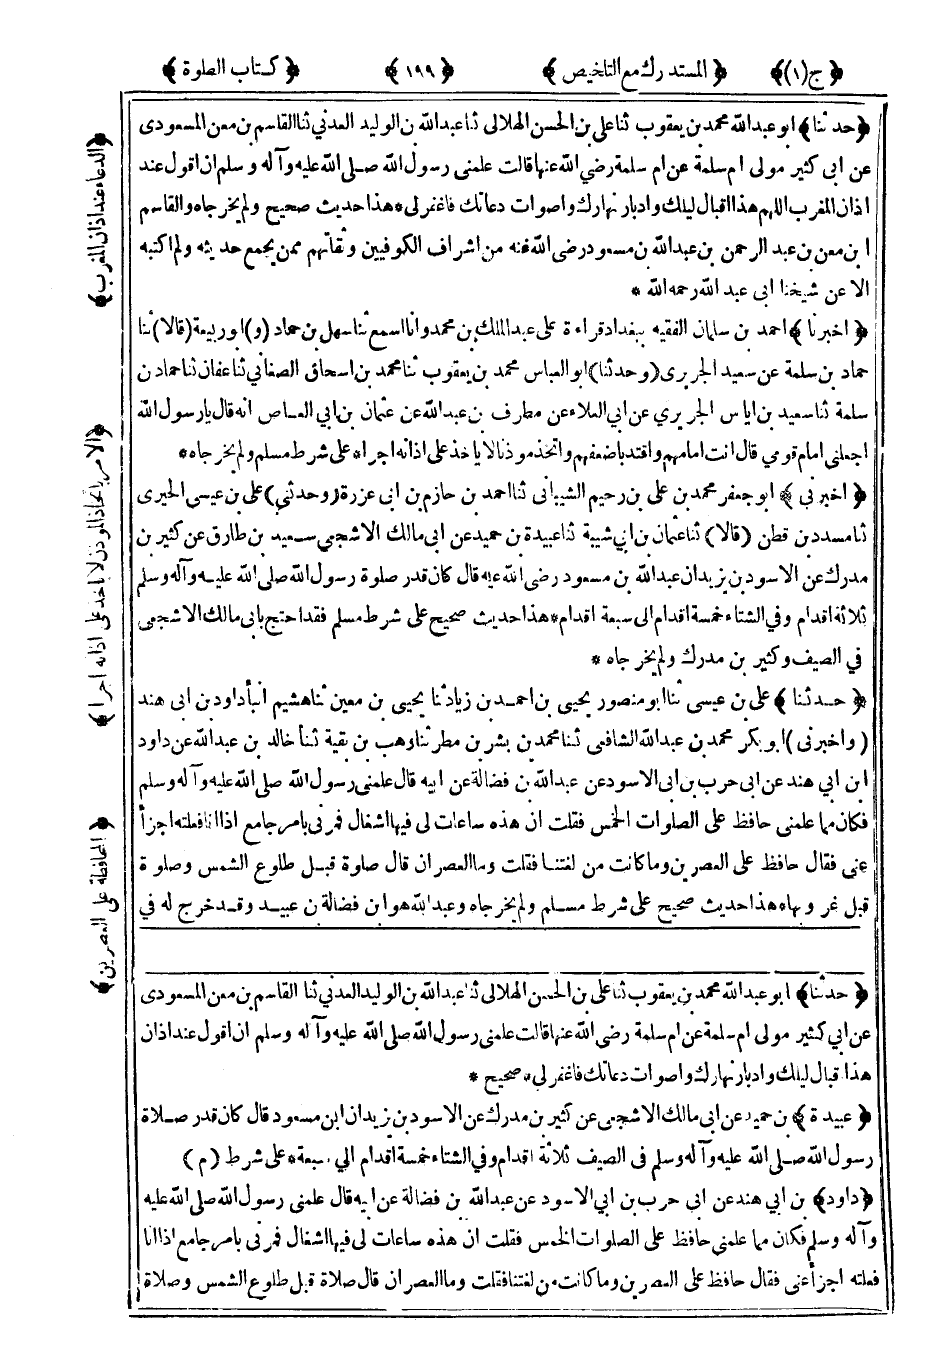 ﴿ج(١)﴾ ﴿المستدرك مع التلخيص﴾ ﴿١٩٩﴾ ﴿كتاب الصلوة﴾
﴿حدثنا﴾ ابو عبدالله محمد بن يعقوب ثنا علي بن الحسن الهلالى ثنا عبدالله بن الوليد العدني ثنا القاسم بن معن المسعودى
عن ابى كثير مولى ام سلمة عن ام سلمة رضي الله عنها قالت علمنى رسول الله صلى الله عليه وآله وسلم ان اقول عند
اذان المغرب اللهم هذا اقبال ليلك وادبار نهارك واصوات دعاتك فاغفر لى * هذا حديث صحيح ولم يخرجاه والقاسم
ابن معن بن عبد الرحمن بن عبدالله بن مسعود رضى الله عنه من اشراف الكوفيين وثقاتهم ممن يجمع حديثه ولم اكتبه
الا عن شيخنا ابى عبد الله رحمه الله *
﴿اخبرنا﴾ احمد بن سلمان الفقيه ببغداد قراءة على عبدالملك بن محمد وانا اسمع ثنا سهل بن حماد (و) ابو ربيعة (قالا) ثنا
حماد بن سلمة عن سعيد الجريرى (وحدثنا) ابو العباس محمد بن يعقوب ثنا محمد بن اسحاق الصغانى ثنا عفان ثنا حماد بن
سلمة ثنا سعيد بن اياس الجريري عن ابي العلاء عن مطرف بن عبدالله عن عثمان بن ابي العاص انه قال يا رسول الله
اجعلنى امام قومي قال انت امامهم واقتد باضعفهم واتخذ موذنا لا يأخذ على اذانه اجرا * على شرط مسلم ولم يخرجاه *
﴿اخبرنى﴾ ابو جعفر محمد بن على بن رحيم الشيبانى ثنا احمد بن حازم بن ابى عزرة (وحدثني) على بن عيسى الحيرى
ثنا مسدد بن قطن (قالا) ثنا عثمان بن ابي شيبة ثنا عبيدة بن حميد عن ابى مالك الاشجعى سعيد بن طارق عن كثير بن
مدرك عن الاسود بن يزيد ان عبدالله بن مسعود رضى الله عنه قال كان قدر صلوة رسول الله صلى الله عليه وآله وسلم
ثلاثة اقدام وفي الشتاء خمسة اقدام الى سبعة اقدام * هذا حديث صحيح على شرط مسلم فقد احتج بابى مالك الاشجعى
في الصيف وكثير بن مدرك ولم يخرجاه *
﴿حدثنا﴾ على بن عيسى ثنا ابو منصور يحيى بن احمد بن زياد ثنا يحيى بن معين ثنا هشيم انبأ داود بن ابى هند
(واخبرنى) ابو بكر محمد بن عبدالله الشافعى ثنا محمد بن بشر بن مطر ثنا وهب بن بقية ثنا خالد بن عبدالله عن داود
ابن ابي هند عن ابى حرب بن ابى الاسود عن عبدالله بن فضالة عن ابيه قال علمنى رسول الله صلى الله عليه وآله وسلم
فكان مما علمنى حافظ على الصلوات الخمس فقلت ان هذه ساعات لى فيها اشغال فمرنى بامر جامع اذا انا فعلته اجزأ
عنى فقال حافظ على العصرين وما كانت من لغتنا فقلت وما العصران قال صلوة قبل طلوع الشمس وصلوة
قبل غروبها * هذا حديث صحيح على شرط مسلم ولم يخرجاه وعبدالله هو ابن فضالة بن عبيد وقد خرج له في
﴿حدثنا﴾ ابو عبدالله محمد بن يعقوب ثنا على بن الحسن الهلالى ثنا عبدالله بن الوليد العدني ثنا القاسم بن معن المسعودى
عن ابي كثير مولى ام سلمة عن ام سلمة رضي الله عنها قالت علمني رسول الله صلى الله عليه وآله وسلم ان اقول عند اذان
هذا اقبال ليلك وادبار نهارك واصوات دعاتك فاغفر لى * صحيح *
﴿عبيدة﴾ بن حميد عن ابى مالك الاشجعى عن كثير بن مدرك عن الاسود بن يزيد ان ابن مسعود قال كان قدر صلاة
رسول الله صلى الله عليه وآله وسلم فى الصيف ثلاثة اقدام وفي الشتاء خمسة اقدام الى سبعة * على شرط (م)
﴿داود﴾ بن ابي هند عن ابى حرب بن ابي الاسود عن عبدالله بن فضالة عن ابيه قال علمنى رسول الله صلى الله عليه
وآله وسلم فكان مما علمنى حافظ على الصلوات الخمس فقلت ان هذه ساعات لى فيها اشغال فمرنى بامر جامع اذا انا
فعلته اجزأ عنى فقال حافظ على العصرين وما كانت من لغتنا فقلت وما العصران قال صلاة قبل طلوع الشمس وصلاة
﴿الدعاء عند اذان المغرب﴾
﴿الامر باتخاذ المؤذن لا يأخذ على اذانه اجرا﴾
﴿المحافظة على العصرين﴾